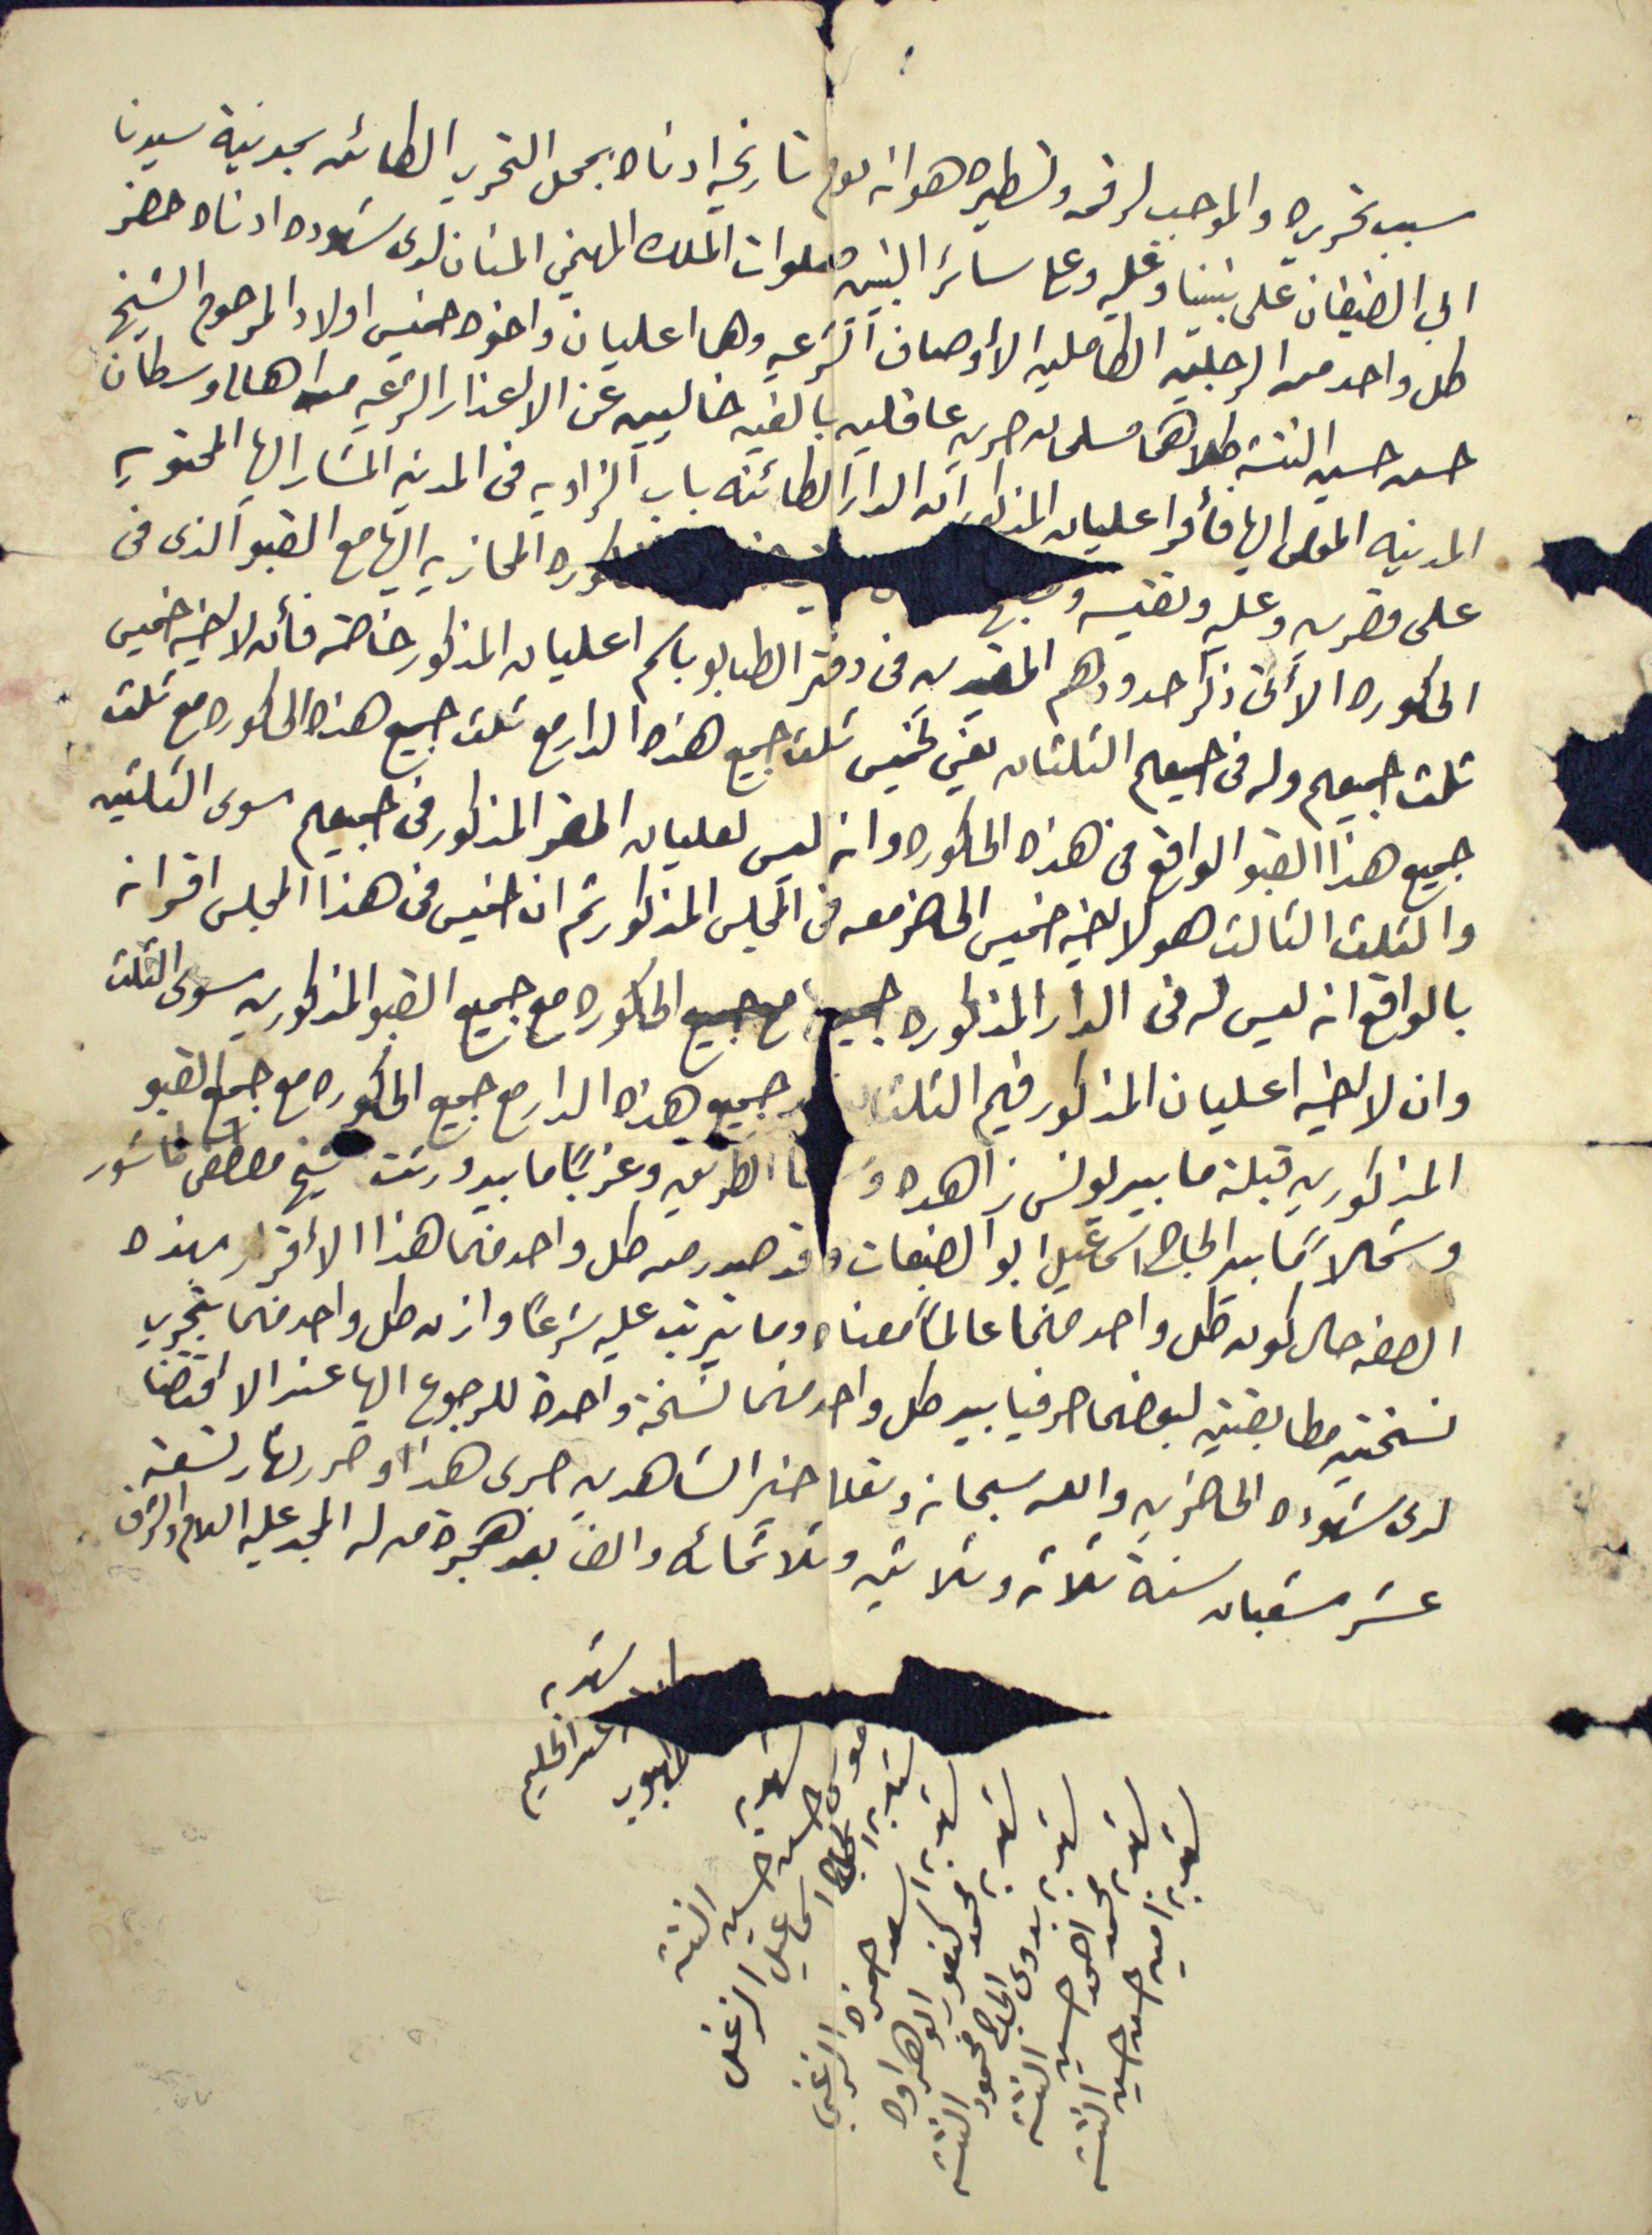 سبب تحريره والموجب لرقمه وتسطيره هو انه يوم تاريخه ادناه بمحل التحرير الكائن بمدينة سيدنا
ابي الضيفان على نبينا وعليه وعلى سائر النبيين صلوات الملك المهيمن المنان لدى شهوده ادناه حضر
كل واحد من الرجلين الكاملين الأوصاف الشرعيه وهما اعليان واخوه خميس اولاد المرحوم الشيخ
حسن حسين النتشه كلاهما مسلمان حرين عاقلين بالغين خاليين عن الاعذار الشرعيه من اهالي وسكان
المدينه المومى اليها فأقر اعليان المذكور ان الدار الكائنه بباب الزاويه فى المدينه المشار اليها المحتويه
على قصرين وعليه ونصفيه كوره المحازيه اليها مع القبو الذى فى
الحاكوره الأتى ذكر حدودهم المقيدين فى دفتر الطابو باسم اعليان المذكور خاصة فأن لاخيه خميس
ثلث جميعهم وله فى جميعهم الثلثان يعني لخميس ثلث جميع هذه الدار مع ثلث جميع هذه الحاكوره مع ثلث
جميع هذا القبو الواقع فى هذه الحاكوره وانه ليس لعليان المقر المذكور فى جميعهم سوى الثلثين
والثلث الثالث هو لاخيه خميس الحاضر معه فى المجلس المذكور ثم ان خميس فى هذا المجلس اقر انه
بالواقع انه ليس له فى الدار المذكوره جميع مع جميع الحاكوره مع جميع القبو المذكورين سوى الثلث
وان لاخيه اعليان المذكور فيهم الثلثان جميع هذه الدار مع جميع الحاكوره مع جميع القبو
المذكورين قبلة ما بيد يونس زاهده الطريق وغربًا ما بيد ورثت الشيخ مصطفى عاشور
وشمالاً ما بيد الحاج اسماعيل ابو الضبعات وقد صدر من كل واحد منهما هذا الأقرار بهذه
الصفه حال كون كل واحد منهما عالماً معناه وما يترتب عليه شرعًا واذن كل واحد منهما بتحرير
نسختين مطابقتين لبعضهما حرفيا بيد كل واحد منهما نسخة واحدة للرجوع اليها عند الاقتضا
لدى شهوده الحاضرين والله سبحانه وتعالى خير الشاهدين جرى هذا وحرر نهار تسعة
عشر شعبان سنة ثلاثه وثلاثين وثلاثمائه والف بعد هجرة من له المجد عليه السلام والشرف
شهد به
عبد الحليم
طهبوب
شهد به
حسن حسين النتشه
شهد به الحاج اسماعيل الزغل
شهد به اسعد حمزه الزغبي
شهد به
محمد
شهد به بدوى الحاج محمود النتشه
شهد به محمد احمد حسين النتشه
شهد به امين حسن حسين النتشه